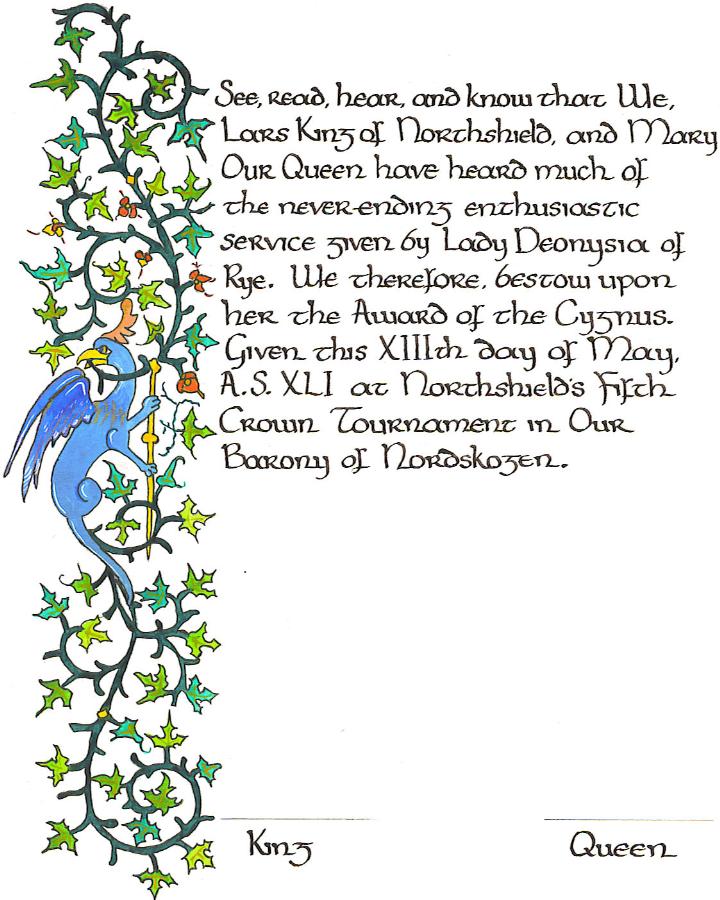 See, read, hear, and know that We,
Lars King of Northshield, and Mary
Our Queen have heard much of
the never-ending enthusiastic
service given by Lady Deonysia of
Rye. We therefore, bestow upon
her the Award of the Cygnus.
Given this XIIIth day of May,
A.S. XLI at Northshield's Fifth
Crown Tournament in Our
Barony of Nordskogen.
King
Queen